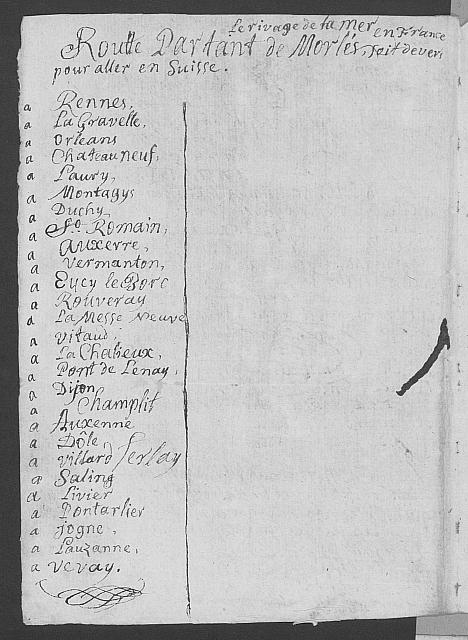 le rivage de la mer en France
Routte Partant de Morles, soit devers
pour aller en Suisse.
a Rennes,
a La Gravelle,
a Orleans
a Chateauneuf,
a Laury,
a Montagys
a Duchy,
a St. Romain,
a Auxerre,
a Vermanton,
a Eucy le Borc
a Rouveray
a La Messe Neuve
a Vitaud,
a La Chalieux,
a Pont de Lenay,
a Dijon
a Champlit
a Auxenne
a Dôle
a Villard Ferlay
a Saling
a Livier
a Pontarlier
a Jogne,
a Lauzanne,
a Vevay.